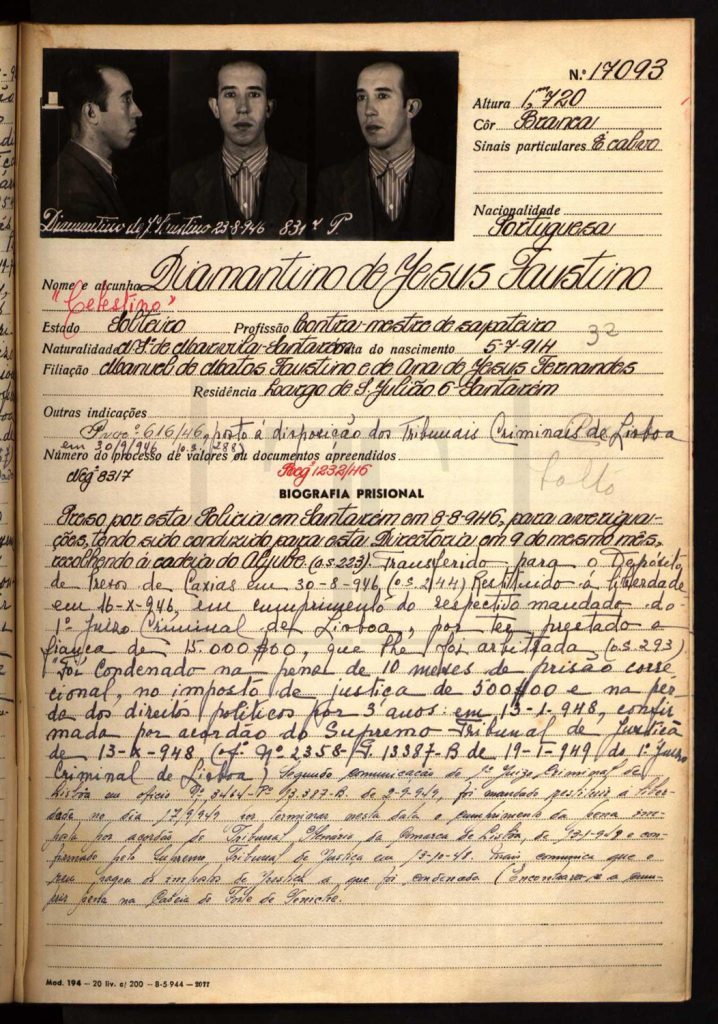 N.º 17093
Altura 1,m720
Côr Branca
Sinais particulares É calvo
Nacionalidade
Portuguesa
Diamantino de J. Faustino 23-8-946 831 P.
Nome e alcunha Diamantino de Jesus Faustino
"Celestino"
Estado Solteiro Profissão Contra-mestre de sapateiro 32
Naturalidade Marvila-Santarém Data do nascimento 5-7-914
Filiação Manuel de Matos Faustino e de Ana de Jesus Fernandes
Residência Largo de S. Julião 6-Santarém
Outras indicações
Procº. 616/46, posto á disposição dos Tribunais Criminais de Lisboa
em 30/9/946 (o.s. 288)
Número do processo de valores ou documentos apreendidos
Regº 8317 Regº 1232/46
Solto
BIOGRAFIA PRISIONAL
Preso por esta Policia em Santarém em 8-8-946, para averigua-
ções, tendo sido conduzido para esta Directoria em 9 do mesmo mês,
recolhendo á cadeia do Aljube (o.s 223). Transferido para o Depósito
de Presos de Caxias em 30-8-946 (o.s. 244) Restituido á liberdade
em 16-X-946, em cumprimento do respectivo mandado do
1º Juizo Criminal de Lisboa, por ter prestado a
fiança de 15.000$00, que lhe foi arbitrada (o.s. 293).
Foi condenado na pena de 10 meses de prisão corre-
cional, no imposto de justiça de 500$00 e na per-
da dos direitos políticos por 3 anos em 13-1-948, confir-
mada por acordão do Supremo Tribunal de Justiça
de 13-X-948 (of. Nº 2358-P. 13387-B de 19-I-949 do 1º Juizo
Criminal de Lisboa) Segundo comunicação do 1º Juizo Criminal de
Lisboa em oficio nº 3464-Pº 13.387-B. de 2-9-949, foi mandado restituir á liber-
dade no dia 17/9/949 por terminar nesta data o cumprimento da pena im-
posta por acordão do Tribunal Plenário da Comarca de Lisboa, de e con-
firmado pelo Supremo Tribunal de Justiça em 13-10-48. Mais comunica que o
pagou o imposto de Justiça a que foi condenado (Encontrava-se a cum-
prir pena na Cadeia do Forte de Peniche.
Mod. 194 — 20 liv. c/ 200 — 8-5 944 — 2077